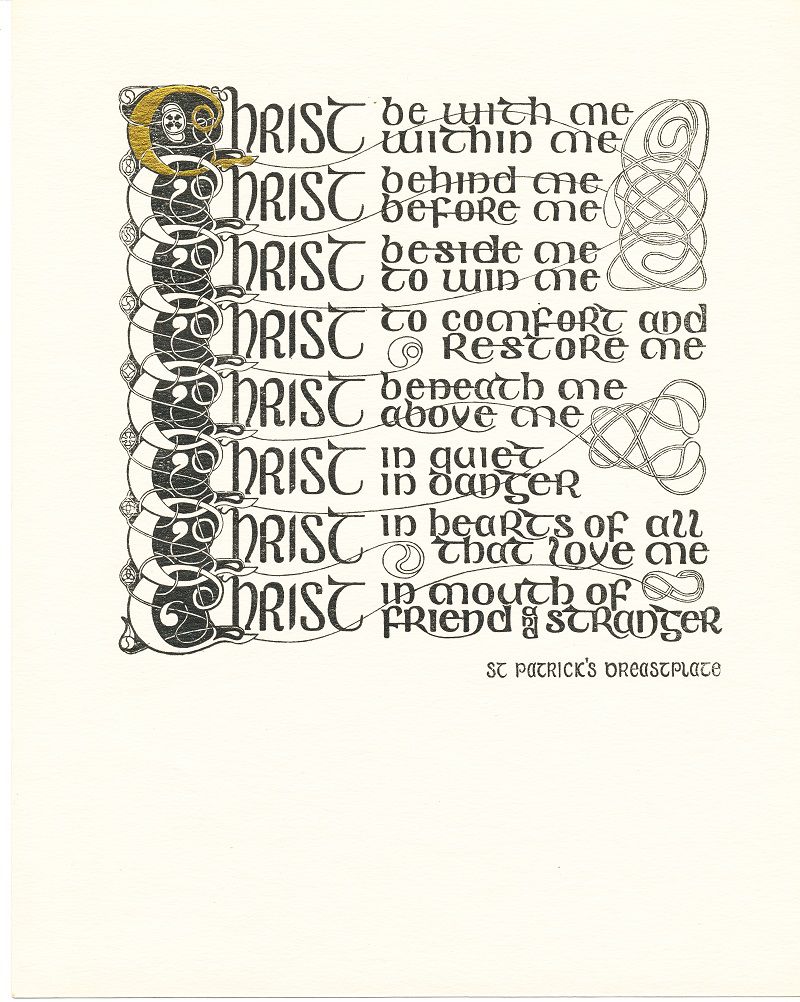 Christ be with me
within me
Christ behind me
before me
Christ beside me
to win me
Christ to comfort and
restore me
Christ beneath me
above me
Christ in quiet
in danger
Christ in hearts of all
that love me
Christ in mouth of
friend and stranger
St Patrick's Breastplate